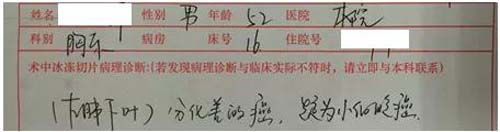 姓名 性别 男 年龄 52 医院 本院
科别 胸外 病房 床号 16 住院号
术中冰冻切片病理诊断:(若发现病理诊断与临床实际不符时,请立即与本科联系)
(右肺下叶)分化差的癌,疑为小细胞癌.